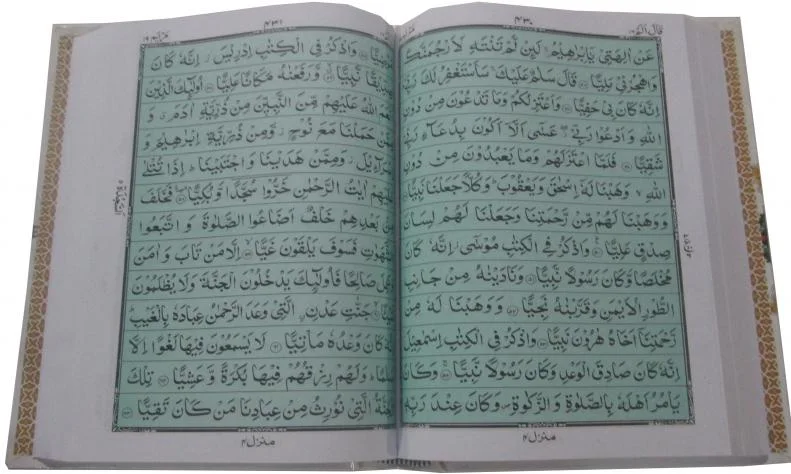 قال الم
٤٣٠
عَنْ اٰلِهَتِیْ یٰۤاِبْرٰهِیْمُ ۚ لَىِٕنْ لَّمْ تَنْتَهِ لَاَرْجُمَنَّكَ
وَاهْجُرْنِیْ مَلِیًّا ﴿۴۶﴾ قَالَ سَلٰمٌ عَلَیْكَ ۚ سَاَسْتَغْفِرُ لَكَ
اِنَّهٗ كَانَ بِیْ حَفِیًّا ﴿۴۷﴾ وَاَعْتَزِلُكُمْ وَمَا تَدْعُوْنَ مِنْ دُوْنِ
اللّٰهِ وَاَدْعُوْا رَبِّیْ ۖ عَسٰۤی اَلَّاۤ اَكُوْنَ بِدُعَآءِ
شَقِیًّا ﴿۴۸﴾ فَلَمَّا اعْتَزَلَهُمْ وَمَا یَعْبُدُوْنَ مِنْ دُوْنِ
اللّٰهِ ۙ وَهَبْنَا لَهٗۤ اِسْحٰقَ وَیَعْقُوْبَ ؕ وَكُلًّا جَعَلْنَا نَبِیًّا
وَوَهَبْنَا لَهُمْ مِّنْ رَّحْمَتِنَا وَجَعَلْنَا لَهُمْ لِسَانَ
صِدْقٍ عَلِیًّا ﴿۵۰﴾ وَاذْكُرْ فِی الْكِتٰبِ مُوْسٰۤی ؗ اِنَّهٗ كَانَ
مُخْلَصًا وَّكَانَ رَسُوْلًا نَّبِیًّا ﴿۵۱﴾ وَنَادَیْنٰهُ مِنْ جَانِبِ
الطُّوْرِ الْاَیْمَنِ وَقَرَّبْنٰهُ نَجِیًّا ﴿۵۲﴾ وَوَهَبْنَا لَهٗ مِنْ
رَّحْمَتِنَاۤ اَخَاهُ هٰرُوْنَ نَبِیًّا ﴿۵۳﴾ وَاذْكُرْ فِی الْكِتٰبِ اِسْمٰعِیْلَ
اِنَّهٗ كَانَ صَادِقَ الْوَعْدِ وَكَانَ رَسُوْلًا نَّبِیًّا ﴿۵۴﴾ وَكَانَ
یَاْمُرُ اَهْلَهٗ بِالصَّلٰوةِ وَالزَّكٰوةِ ۪ وَكَانَ عِنْدَ رَبِّهٖ
منزل ۴
٤٣١
مریم ١٩
وَاذْكُرْ فِی الْكِتٰبِ اِدْرِیْسَ ؗ اِنَّهٗ كَانَ
نَّبِیًّا ﴿۵۶﴾ وَّرَفَعْنٰهُ مَكَانًا عَلِیًّا ﴿۵۷﴾ اُولٰٓىِٕكَ الَّذِیْنَ
اللّٰهُ عَلَیْهِمْ مِّنَ النَّبِیّٖنَ مِنْ ذُرِّیَّةِ اٰدَمَ ۗ وَ
حَمَلْنَا مَعَ نُوْحٍ ؗ وَّمِنْ ذُرِّیَّةِ اِبْرٰهِیْمَ وَ
وَمِمَّنْ هَدَیْنَا وَاجْتَبَیْنَا ؕ اِذَا تُتْلٰی
اٰیٰتُ الرَّحْمٰنِ خَرُّوْا سُجَّدًا وَّبُكِیًّا ﴿۵۸﴾ فَخَلَفَ
بَعْدِهِمْ خَلْفٌ اَضَاعُوا الصَّلٰوةَ وَاتَّبَعُوا
فَسَوْفَ یَلْقَوْنَ غَیًّا ﴿۵۹﴾ اِلَّا مَنْ تَابَ وَاٰمَنَ
صَالِحًا فَاُولٰٓىِٕكَ یَدْخُلُوْنَ الْجَنَّةَ وَلَا یُظْلَمُوْنَ
جَنّٰتِ عَدْنِ ۣالَّتِیْ وَعَدَ الرَّحْمٰنُ عِبَادَهٗ بِالْغَیْبِ ؕ
كَانَ وَعْدُهٗ مَاْتِیًّا ﴿۶۱﴾ لَا یَسْمَعُوْنَ فِیْهَا لَغْوًا اِلَّا
وَلَهُمْ رِزْقُهُمْ فِیْهَا بُكْرَةً وَّعَشِیًّا ﴿۶۲﴾ تِلْكَ
الَّتِیْ نُوْرِثُ مِنْ عِبَادِنَا مَنْ كَانَ تَقِیًّا ﴿۶۳﴾
منزل ۴